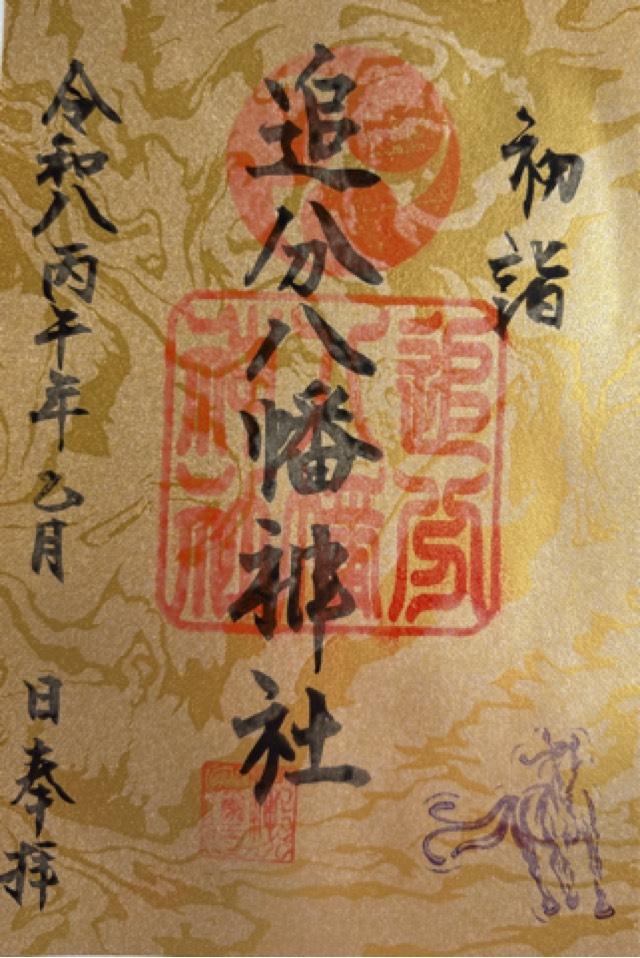 初詣
追分八幡神社
追分
八幡
神社
令和八丙午年 乙月 日奉拝